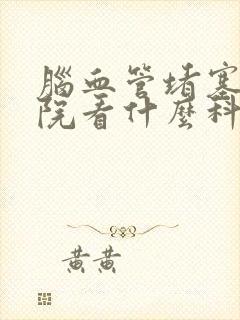 腦血管堵塞
院看什麼科
黃黃